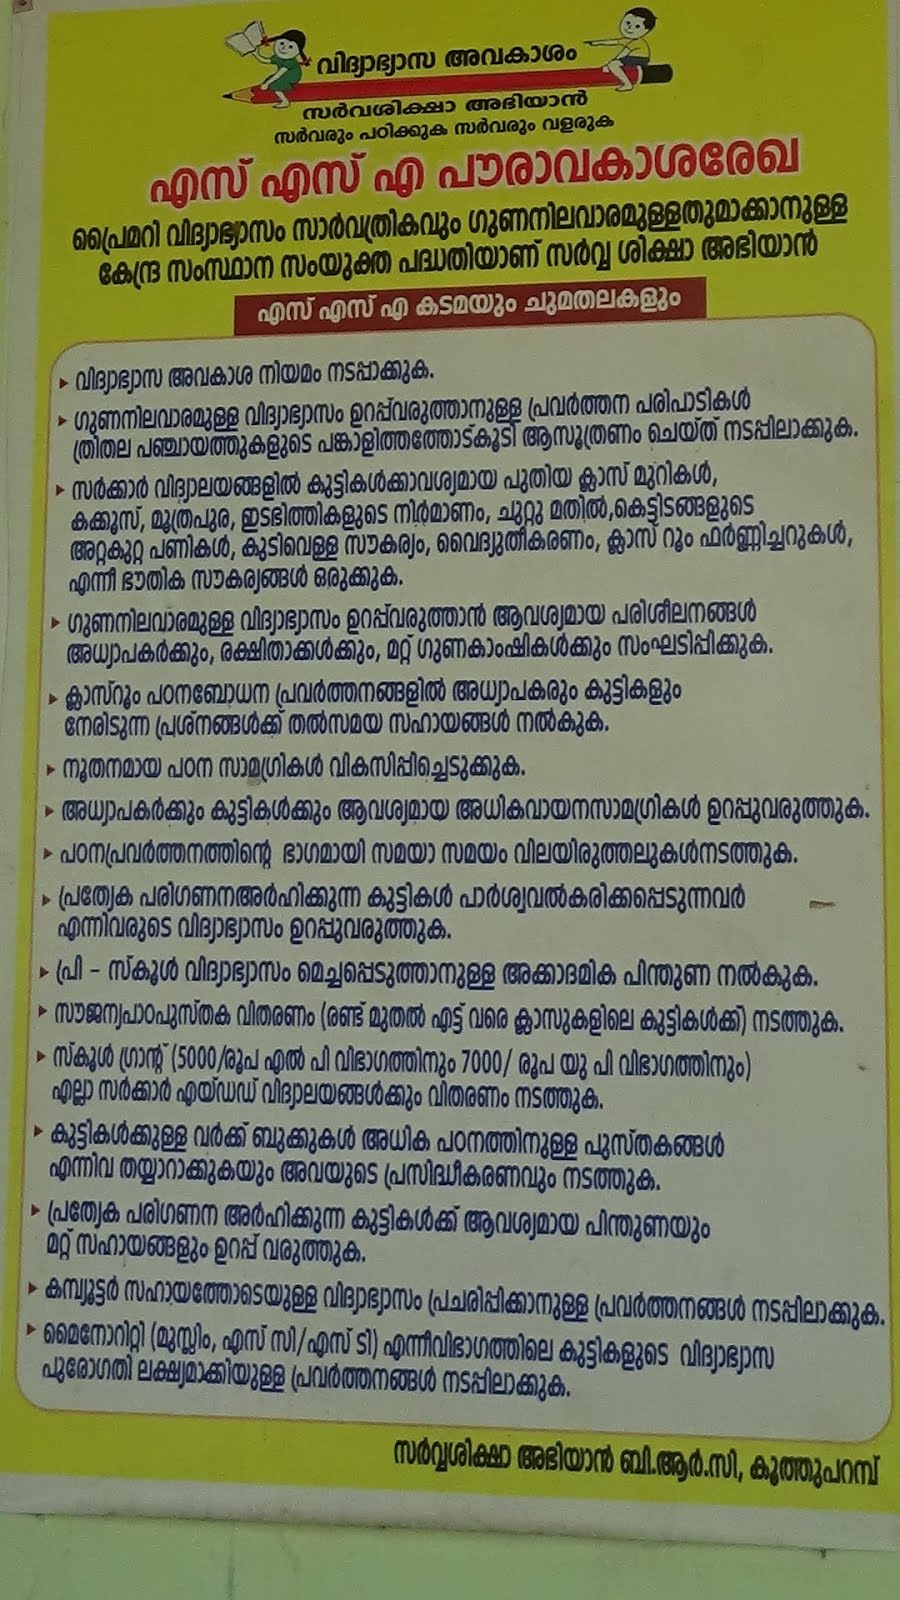 വിദ്യാഭ്യാസ അവകാശം
സർവശിക്ഷാ അഭിയാൻ
സർവരും പഠിക്കുക സർവരും വളരുക
എസ് എസ് എ പൗരാവകാശരേഖ
പ്രൈമറി വിദ്യാഭ്യാസം സാർവത്രികവും ഗുണനിലവാരമുള്ളതുമാക്കാനുള്ള
കേന്ദ്ര സംസ്ഥാന സംയുക്ത പദ്ധതിയാണ് സർവ്വ ശിക്ഷാ അഭിയാൻ
എസ് എസ് എ കടമയും ചുമതലകളും
വിദ്യാഭ്യാസ അവകാശ നിയമം നടപ്പാക്കുക.
ഗുണനിലവാരമുള്ള വിദ്യാഭ്യാസം ഉറപ്പ്‌വരുത്താനുള്ള പ്രവർത്തന പരിപാടികൾ
ത്രിതല പഞ്ചായത്തുകളുടെ പങ്കാളിത്തത്തോട്കൂടി ആസൂത്രണം ചെയ്ത് നടപ്പിലാക്കുക.
സർക്കാർ വിദ്യാലയങ്ങളിൽ കുട്ടികൾക്കാവശ്യമായ പുതിയ ക്ലാസ് മുറികൾ,
കക്കൂസ്, മൂത്രപുര, ഇടഭിത്തികളുടെ നിർമാണം, ചുറ്റു മതിൽ,കെട്ടിടങ്ങളുടെ
അറ്റകുറ്റ പണികൾ, കുടിവെള്ള സൗകര്യം, വൈദ്യുതീകരണം, ക്ലാസ് റൂം ഫർണ്ണിച്ചറുകൾ,
എന്നീ ഭൗതിക സൗകര്യങ്ങൾ ഒരുക്കുക.
ഗുണനിലവാരമുള്ള വിദ്യാഭ്യാസം ഉറപ്പ്‌വരുത്താൻ ആവശ്യമായ പരിശീലനങ്ങൾ
അധ്യാപകർക്കും, രക്ഷിതാക്കൾക്കും, മറ്റ് ഗുണകാംഷികൾക്കും സംഘടിപ്പിക്കുക.
ക്ലാസ്റൂം പഠനബോധന പ്രവർത്തനങ്ങളിൽ അധ്യാപകരും കുട്ടികളും
നേരിടുന്ന പ്രശ്നങ്ങൾക്ക് തൽസമയ സഹായങ്ങൾ നൽകുക.
നൂതനമായ പഠന സാമഗ്രികൾ വികസിപ്പിച്ചെടുക്കുക.
അധ്യാപകർക്കും കുട്ടികൾക്കും ആവശ്യമായ അധികവായനസാമഗ്രികൾ ഉറപ്പുവരുത്തുക.
പഠനപ്രവർത്തനത്തിന്റെ ഭാഗമായി സമയാ സമയം വിലയിരുത്തലുകൾനടത്തുക.
പ്രത്യേക പരിഗണനഅർഹിക്കുന്ന കുട്ടികൾ പാർശ്വവൽകരിക്കപ്പെടുന്നവർ
എന്നിവരുടെ വിദ്യാഭ്യാസം ഉറപ്പുവരുത്തുക.
പ്രി - സ്കൂൾ വിദ്യാഭ്യാസം മെച്ചപ്പെടുത്താനുള്ള അക്കാദമിക പിന്തുണ നൽകുക.
സൗജന്യപാഠപുസ്തക വിതരണം (രണ്ട് മുതൽ എട്ട് വരെ ക്ലാസുകളിലെ കുട്ടികൾക്ക്) നടത്തുക.
സ്കൂൾ ഗ്രാന്റ് (5000/രൂപ എൽ പി വിഭാഗത്തിനും 7000/ രൂപ യു പി വിഭാഗത്തിനും)
എല്ലാ സർക്കാർ എയ്ഡഡ് വിദ്യാലയങ്ങൾക്കും വിതരണം നടത്തുക.
കുട്ടികൾക്കുള്ള വർക്ക് ബുക്കുകൾ അധിക പഠനത്തിനുള്ള പുസ്തകങ്ങൾ
എന്നിവ തയ്യാറാക്കുകയും അവയുടെ പ്രസിദ്ധീകരണവും നടത്തുക.
പ്രത്യേക പരിഗണന അർഹിക്കുന്ന കുട്ടികൾക്ക് ആവശ്യമായ പിന്തുണയും
മറ്റ് സഹായങ്ങളും ഉറപ്പ് വരുത്തുക.
കമ്പ്യൂട്ടർ സഹായത്തോടെയുള്ള വിദ്യാഭ്യാസം പ്രചരിപ്പിക്കാനുള്ള പ്രവർത്തനങ്ങൾ നടപ്പിലാക്കുക.
മൈനോറിറ്റി (മുസ്ലിം, എസ് സി/എസ് ടി) എന്നീവിഭാഗത്തിലെ കുട്ടികളുടെ വിദ്യാഭ്യാസ
പുരോഗതി ലക്ഷ്യമാക്കിയുള്ള പ്രവർത്തനങ്ങൾ നടപ്പിലാക്കുക.
സർവ്വശിക്ഷാ അഭിയാൻ ബി.ആർ.സി, കൂത്തുപറമ്പ്